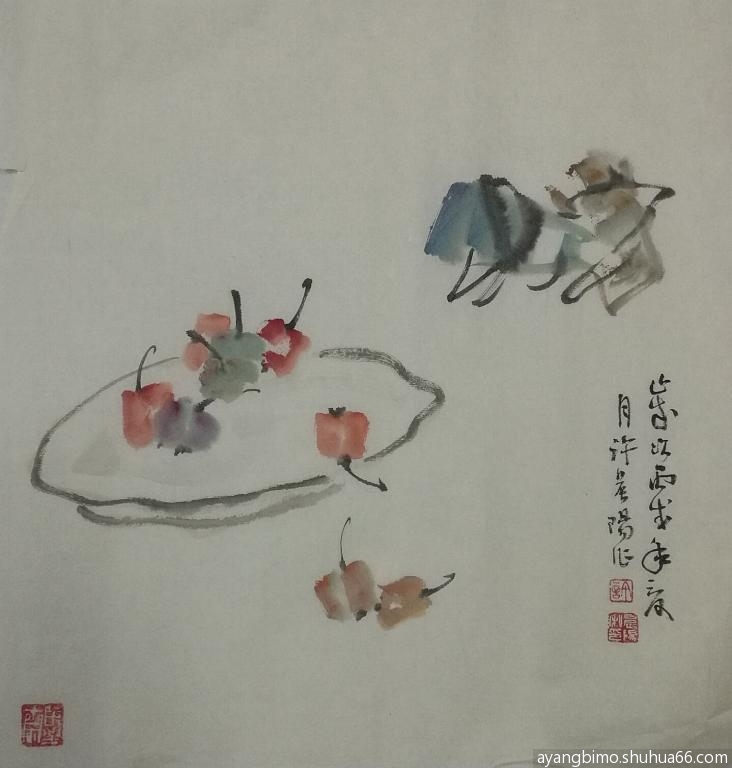 歲次丙戌年夏
月許晨陽作
ayangbimo.shuhua66.com